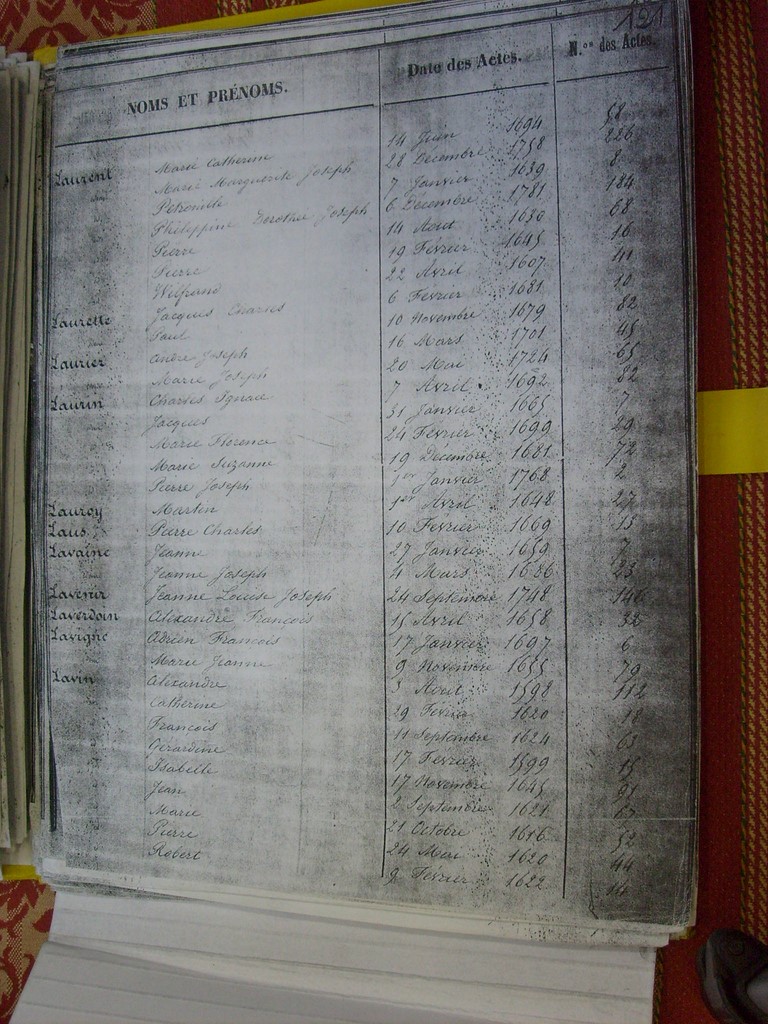 121
NOMS ET PRÉNOMS. Date des Actes. N.os des Actes.
Laurent Marie Catherine 14 Juin 1694 58
Marie Marguerite Joseph 28 Decembre 1758 226
Petronile 7 Janvier 1689 8
Philippine Dorothie Joseph 6 Decembre 1781 184
Pierre 14 Aout 1630 68
Pierre 19 Fevrier 1645 16
Wilfrand 22 Avril 1607 41
Laurette Jacques Charles 6 Fevrier 1681 10
Paul 10 Novembre 1679 82
Laurier André Joseph 16 Mars 1701 45
Marie Joseph 20 Mai 1724 65
Laurin Charles Ignace 7 Avril 1692 82
Jacques 31 Janvier 1665 7
Marie Florence 24 Fevrier 1699 29
Marie Suzanne 19 Decembre 1681 72
Pierre Joseph 1er Janvier 1768 2
Lauroy Martin 1er Avril 1648 27
Laus Pierre Charles 10 Fevrier 1669 15
Lavaine Jeanne 27 Janvier 1659 7
Jeanne Joseph 4 Mars 1686 23
Lavenir Jeanne Louise Joseph 24 Septembre 1748 146
Laverdoin Alexandre Francois 15 Avril 1658 32
Lavigne Adrien Francois 17 Janvier 1697 6
Marie Jeanne 9 Novembre 1655 79
Lavin Alexandre 3 Aout 1598 112
Catherine 29 Fevrier 1620 18
Francois 11 Septembre 1624 63
Gerardine 17 Fevrier 1599 15
Isabelle 17 Novembre 1645 91
Jean 2 Septembre 1621 67
Marie 21 Octobre 1616 52
Pierre 24 Mai 1620 44
Robert 9 Fevrier 1622 14